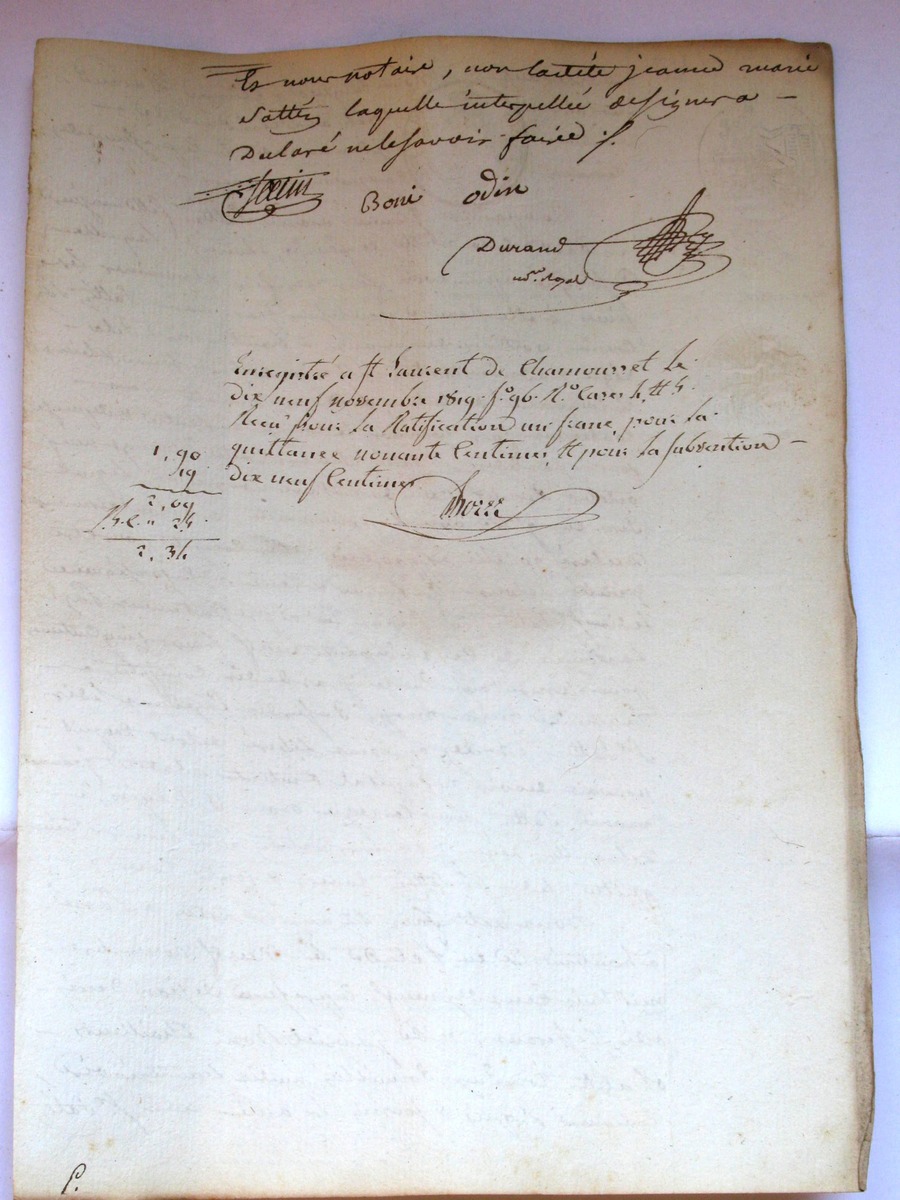 Et nous notaire, non ladite jeanne marie
Satté laquelle interpellée de signer a
Declaré ne le savoir faire
Boni odin
Durand
no.re Royal
Enregistré a St Laurent de Chamousset le
dix neuf novembre 1819 fo 96 Ro Cases 4 et 5
Recu pour la Ratification un franc, pour la
quittance nonante Centimes, et pour la subvention
dix neuf Centimes
1,90
19
2,09
25
2,34